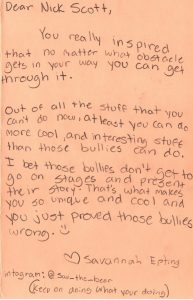 Dear Nick Scott,
You really inspired
that no matter what obstacle
gets in your way you can get
through it.
Out of all the stuff that you
can't do now, atleast you can do
more cool, and interesting stuff
than those bullies can do.
I bet those bullies don't get to
go on stages and present
their story. That's what makes
you so unique and cool and
you just proved those bullies
wrong.
Savannah Epting
intogram: @Sav_the_bear
(Keep on doing what your doing)